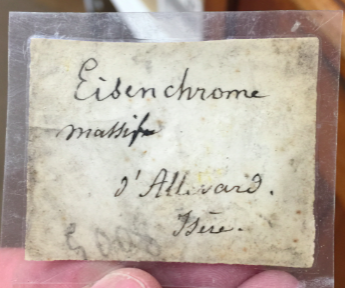 Eisenchrome
massif
d'Allevard.
Isère.